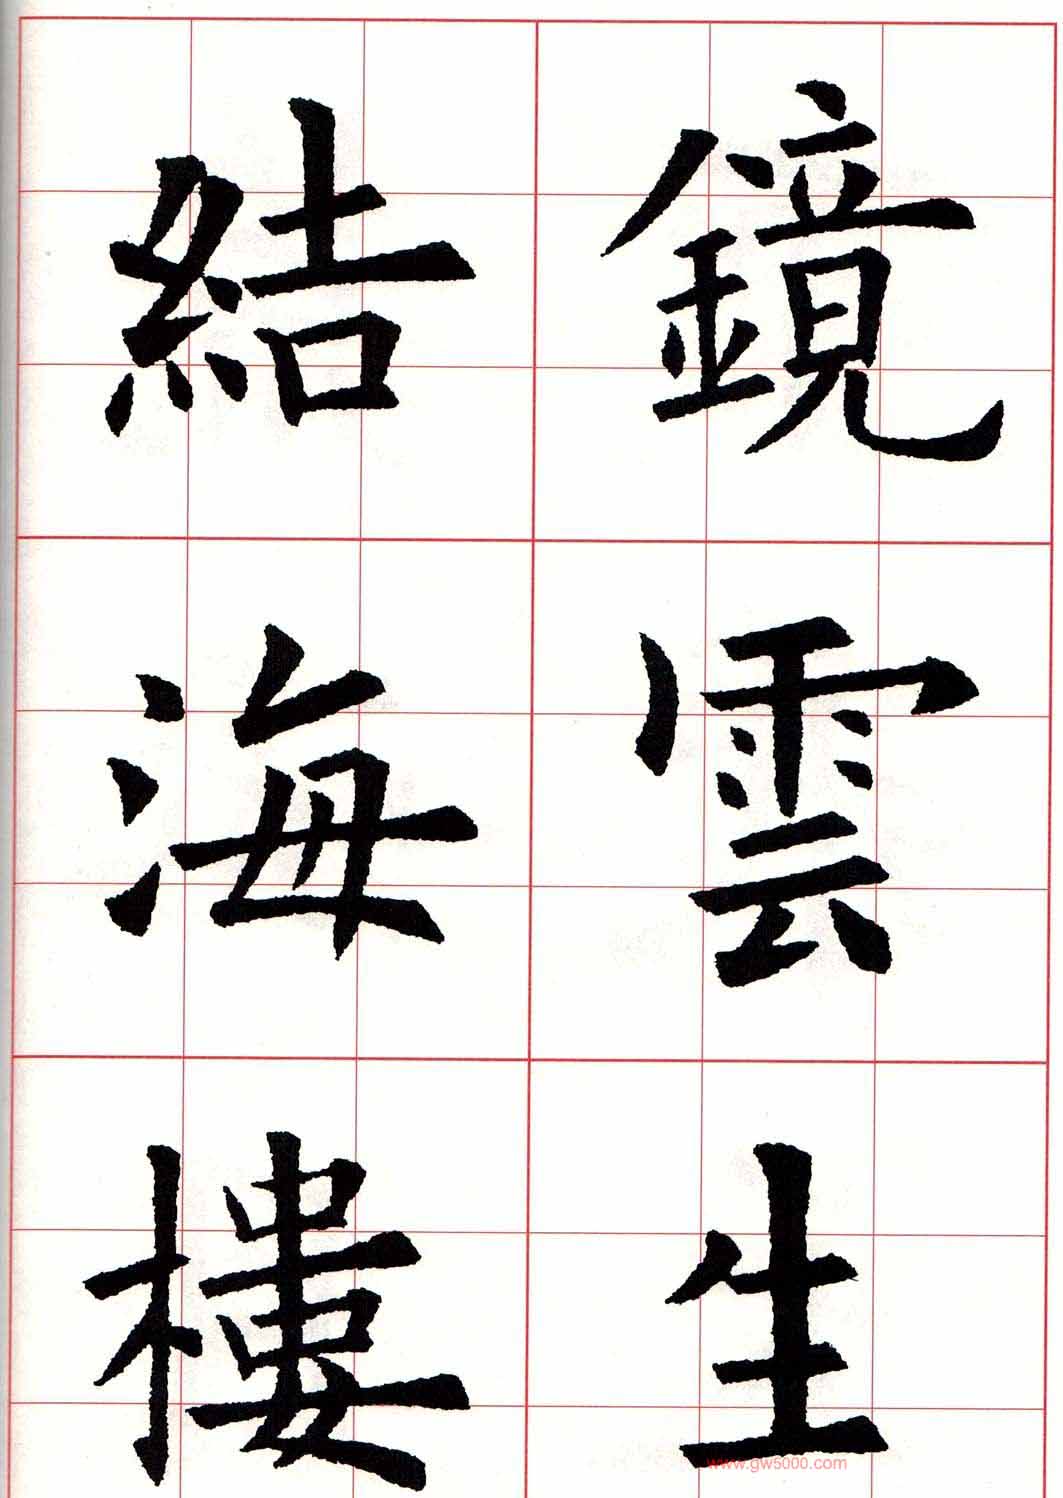 鏡雲生
結海樓
www.gw5000.com